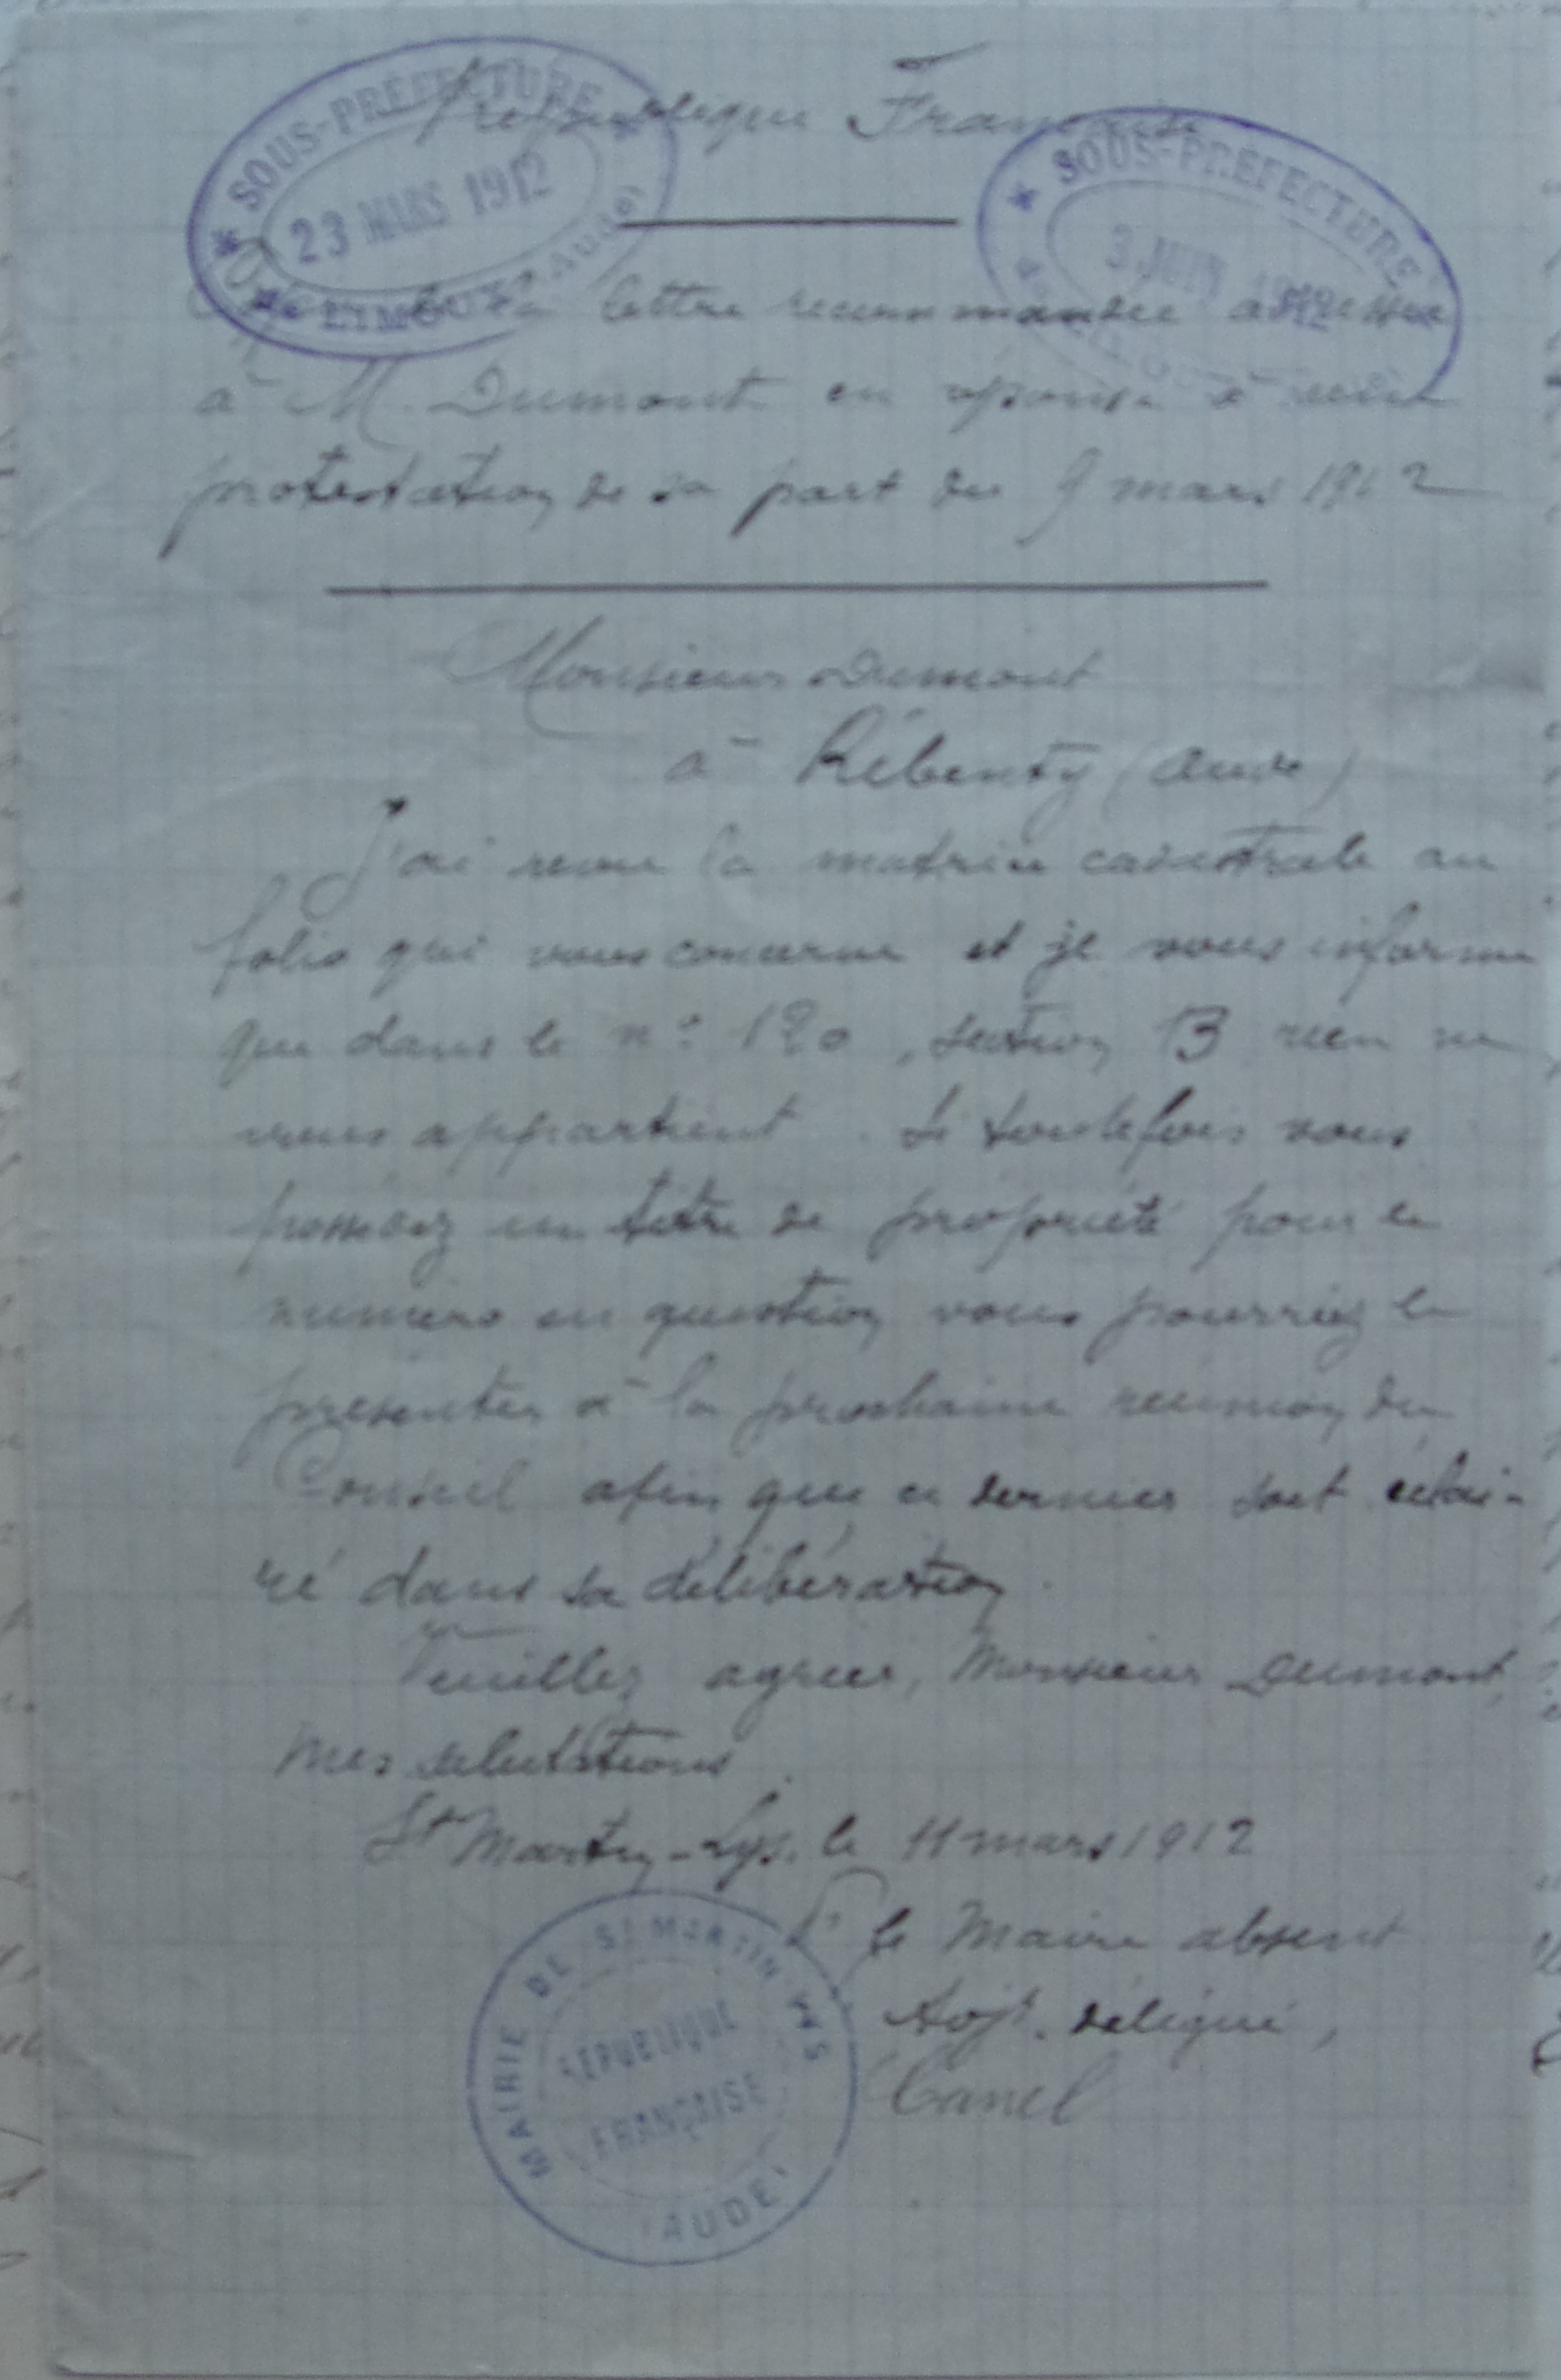 République Française
SOUS-PRÉFECTURE
23 MARS 1912
de LIMOUX (AUDE)
SOUS-PRÉFECTURE
3 JUIN 1912
de la lettre recommandée adressée
à M. Dumont en réponse à une
protestation de sa part du 9 mars 1912
Monsieur Dumont
à Rébenty (Aude)
J'ai revu la matrice cadastrale au
folio qui vous concerne et je vous informe
que dans le n° 120, section B rien ne
vous appartient. Si toutefois vous
possédez un titre de propriété pour le
numéro en question vous pourriez le
présenter à la prochaine réunion du
Conseil afin que ce dernier soit éclai-
ré dans sa délibération.
Veuillez agréer, Monsieur Dumont,
mes salutations.
St Martin-Lys, le 11 mars 1912
Pr le Maire absent
Adjt. délégué,
Canel
MAIRIE DE ST MARTIN LYS
RÉPUBLIQUE
FRANÇAISE
(AUDE)